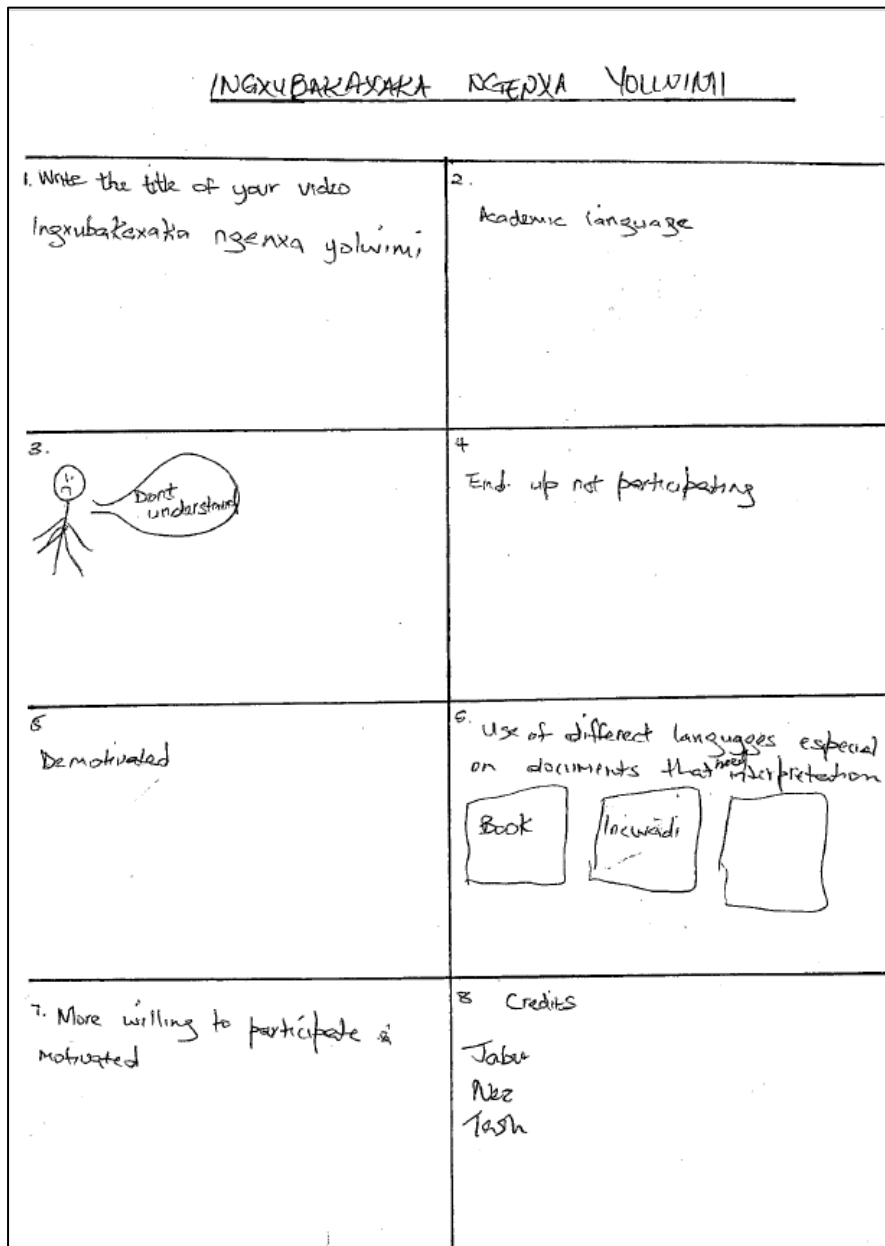 INGXUBAKAXAKA NGENXA YOLWIMI
1. Write the title of your video
Ingxubakaxaka ngenxa yolwimi
2.
Academic language
3.
Dont
understand
4
End up not participating
5
Demotivated
6. Use of different languages especial
on documents that need interpretation
Book
Incwadi
7. More willing to participate &
motivated
8 Credits
Jabu
Nez
Tash